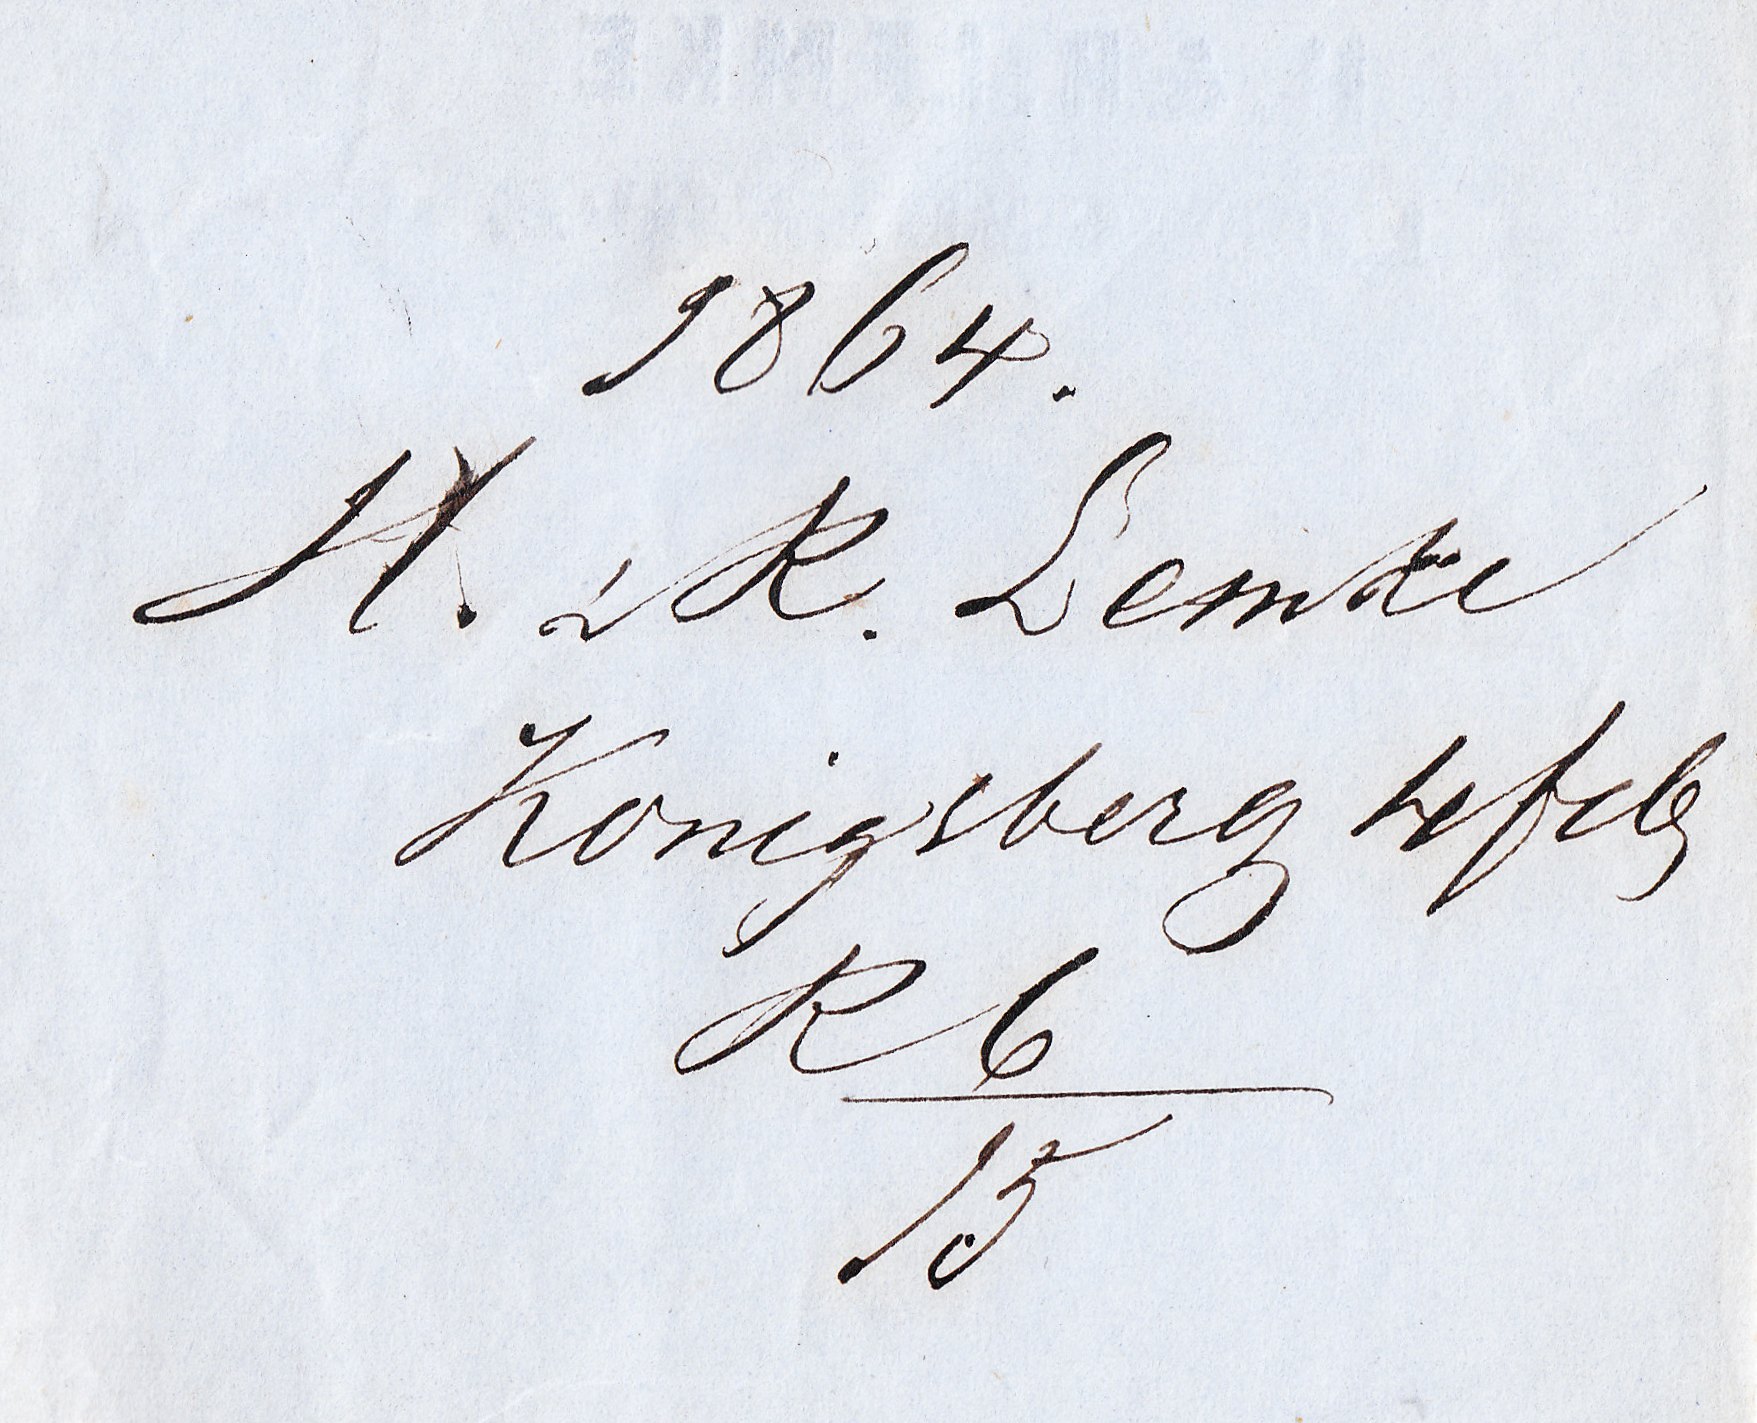 1864.
H. & R. Lemke
Konigsberg 4 febr
R 6
15